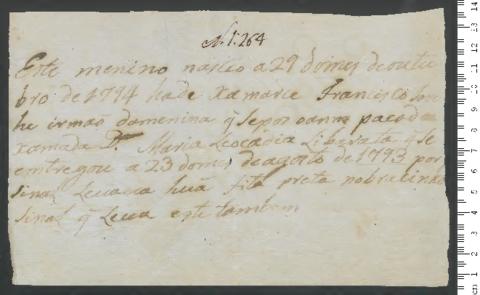 N. 1.264
Este menino naiceo a 29 domes de outu
bro de 1794 hade xamarce Francisco Jon
he irmaõ da menina q̃ Sepos oanno pacado
xamada D. Maria Leocadia Liberata q̃ Se
emtregou a 23 domes de agosto de 1793 por
sinal Levava huã fita preta no bracinho
Sinal q̃ Leva este tambem